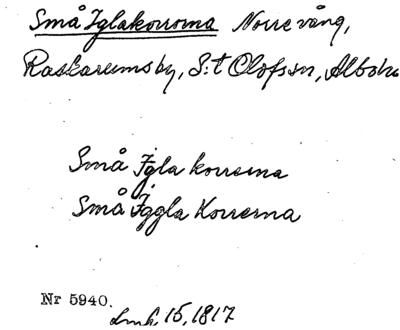 Små Iglakorrorna Norrevång,
Raskarumsby, S:t Olofs sn, Albo hd
Små Igla korrerna
Små Iggla Korrerna
Nr 5940.
Lmh. 15, 1817